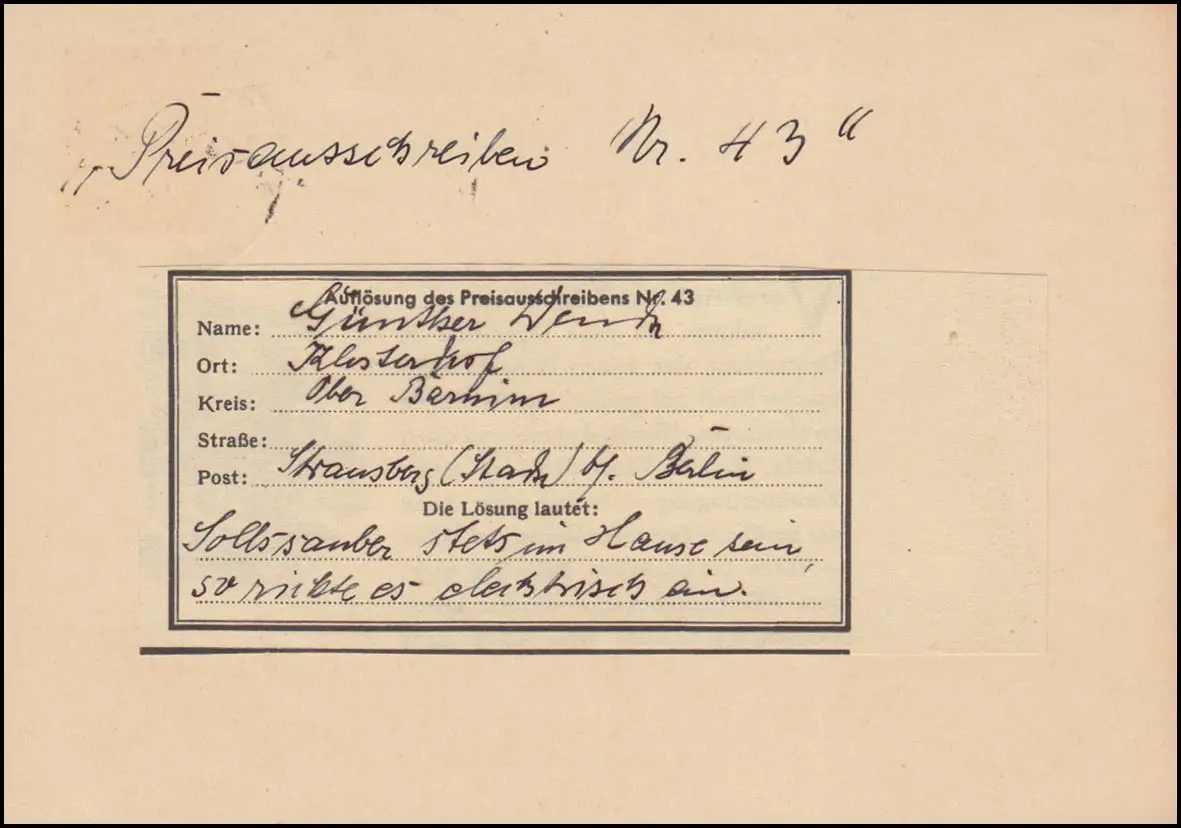 „Preisausschreiben Nr. 43“
Auflösung des Preisausschreibens Nr. 43
Name: Günther
Ort: Klosterhof
Kreis: Ober Barnim
Straße:
Post: Strausberg (Stadt) b/. Berlin
Die Lösung lautet:
Solls sauber stets im Hause sein,
so richte es elektrisch ein.